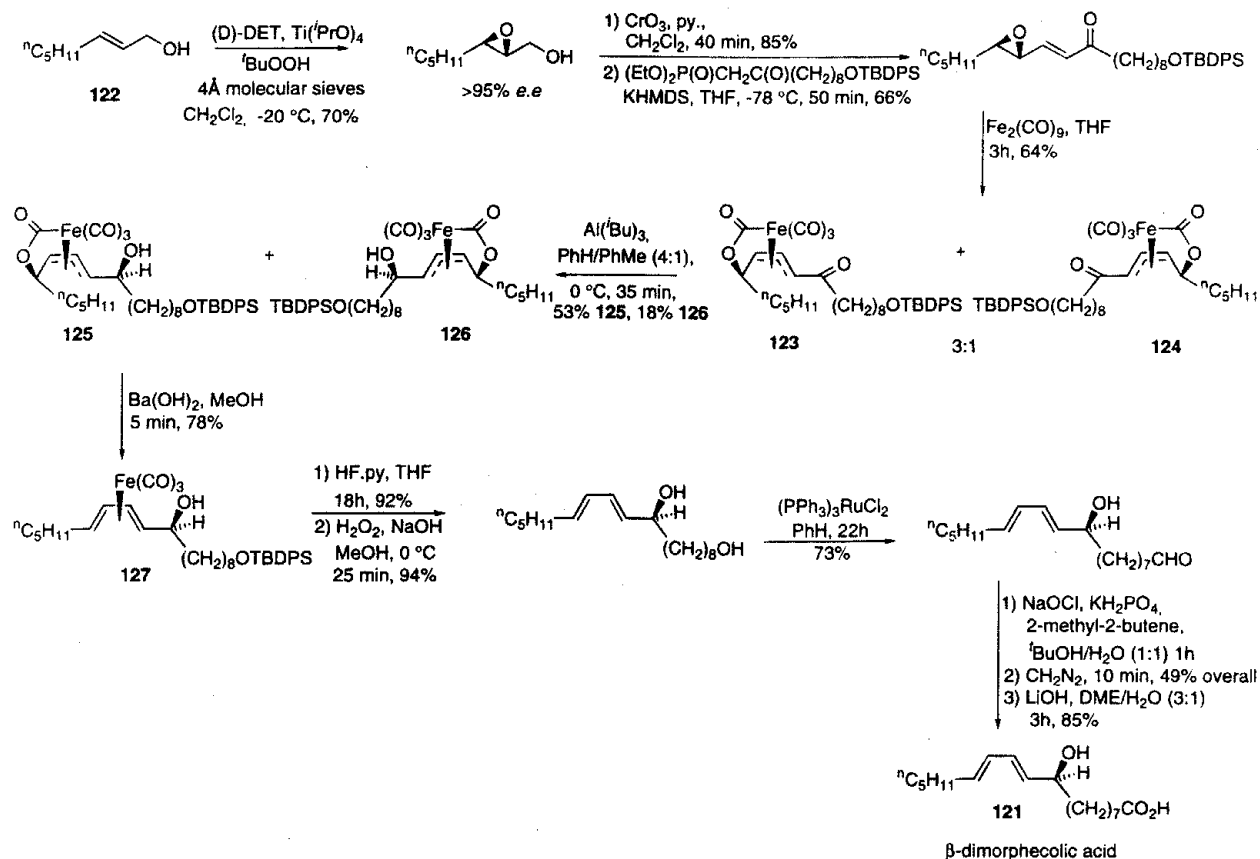 (D)-DET, Ti(ⁱPrO)₄
ᵗBuOOH
4Å molecular sieves
CH₂Cl₂, -20 °C, 70%
ⁿC₅H₁₁
OH
122
O
ⁿC₅H₁₁
OH
>95% e.e
1) CrO₃, py.,
CH₂Cl₂, 40 min, 85%
2) (EtO)₂P(O)CH₂C(O)(CH₂)₈OTBDPS
KHMDS, THF, -78 °C, 50 min, 66%
O
O
ⁿC₅H₁₁
(CH₂)₈OTBDPS
Fe₂(CO)₉, THF
3h, 64%
O
Fe(CO)₃
OH
O
H
ⁿC₅H₁₁
(CH₂)₈OTBDPS
125
+
(CO)₃Fe
O
HO
O
H
ⁿC₅H₁₁
TBDPSO(CH₂)₈
126
Al(ⁱBu)₃,
PhH/PhMe (4:1),
0 °C, 35 min,
53% 125, 18% 126
O
Fe(CO)₃
O
O
ⁿC₅H₁₁
(CH₂)₈OTBDPS
123
+
3:1
(CO)₃Fe
O
O
O
ⁿC₅H₁₁
TBDPSO(CH₂)₈
124
Ba(OH)₂, MeOH
5 min, 78%
Fe(CO)₃
OH
H
ⁿC₅H₁₁
(CH₂)₈OTBDPS
127
1) HF.py, THF
18h, 92%
2) H₂O₂, NaOH
MeOH, 0 °C
25 min, 94%
OH
H
ⁿC₅H₁₁
(CH₂)₈OH
(PPh₃)₃RuCl₂
PhH, 22h
73%
OH
H
ⁿC₅H₁₁
(CH₂)₇CHO
1) NaOCl, KH₂PO₄,
2-methyl-2-butene,
ᵗBuOH/H₂O (1:1) 1h
2) CH₂N₂, 10 min, 49% overall
3) LiOH, DME/H₂O (3:1)
3h, 85%
OH
H
ⁿC₅H₁₁
(CH₂)₇CO₂H
121
β-dimorphecolic acid